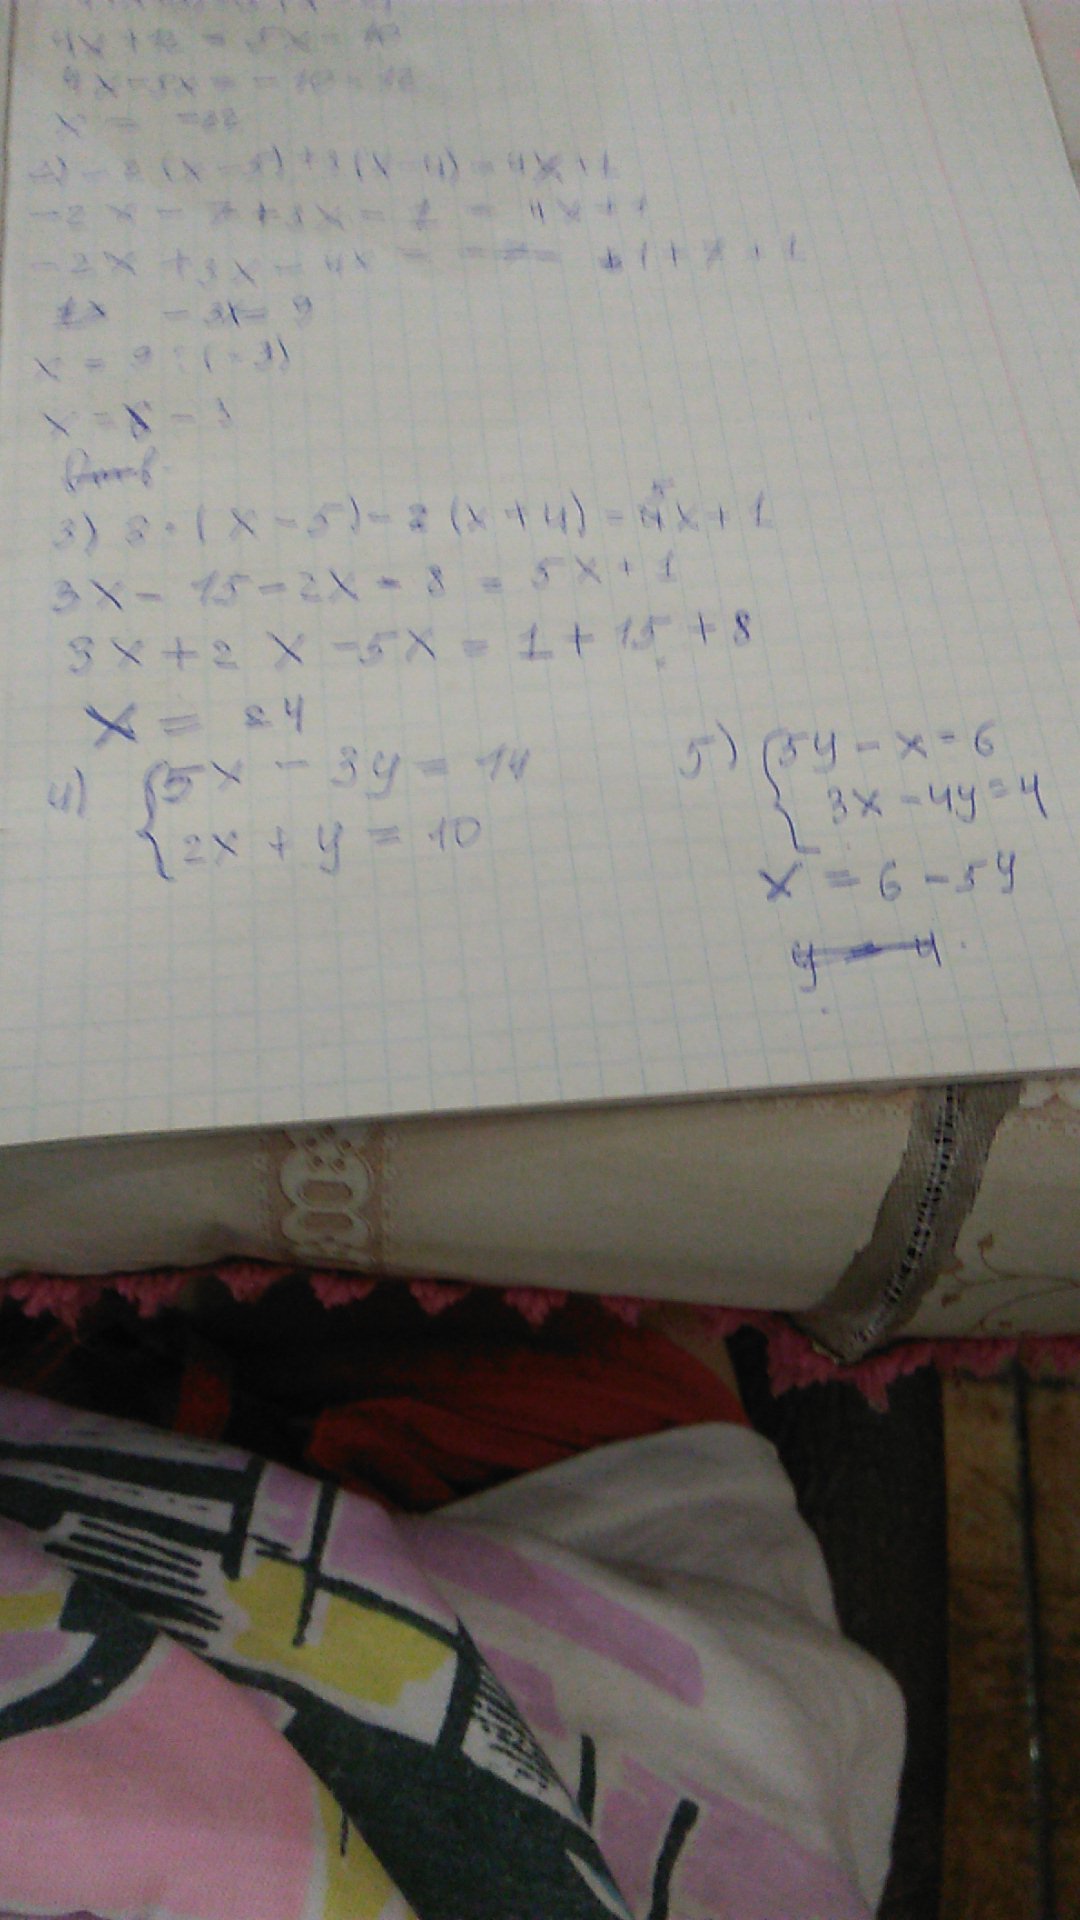 4x + 12 = 5x - 10
4x - 5x = - 10 - 12
x =
2) - 2 (x - 5) + 3 (x - 4) = 4x + 1
- 2x - 7 + 3x - 1 = 4x + 1
- 2x + 3x - 4x = 1 + 7 + 1
- 3x = 9
x = 9 : (-3)
x = - 3
3) 3 · (x - 5) - 2 (x + 4) = 5x + 1
3x - 15 - 2x - 8 = 5x + 1
3x + 2x - 5x = 1 + 15 + 8
x = 24
4) { 5x - 3y = 14
2x + y = 10
5) { 5y - x = 6
3x - 4y = 4
x = 6 - 5y
y = 4